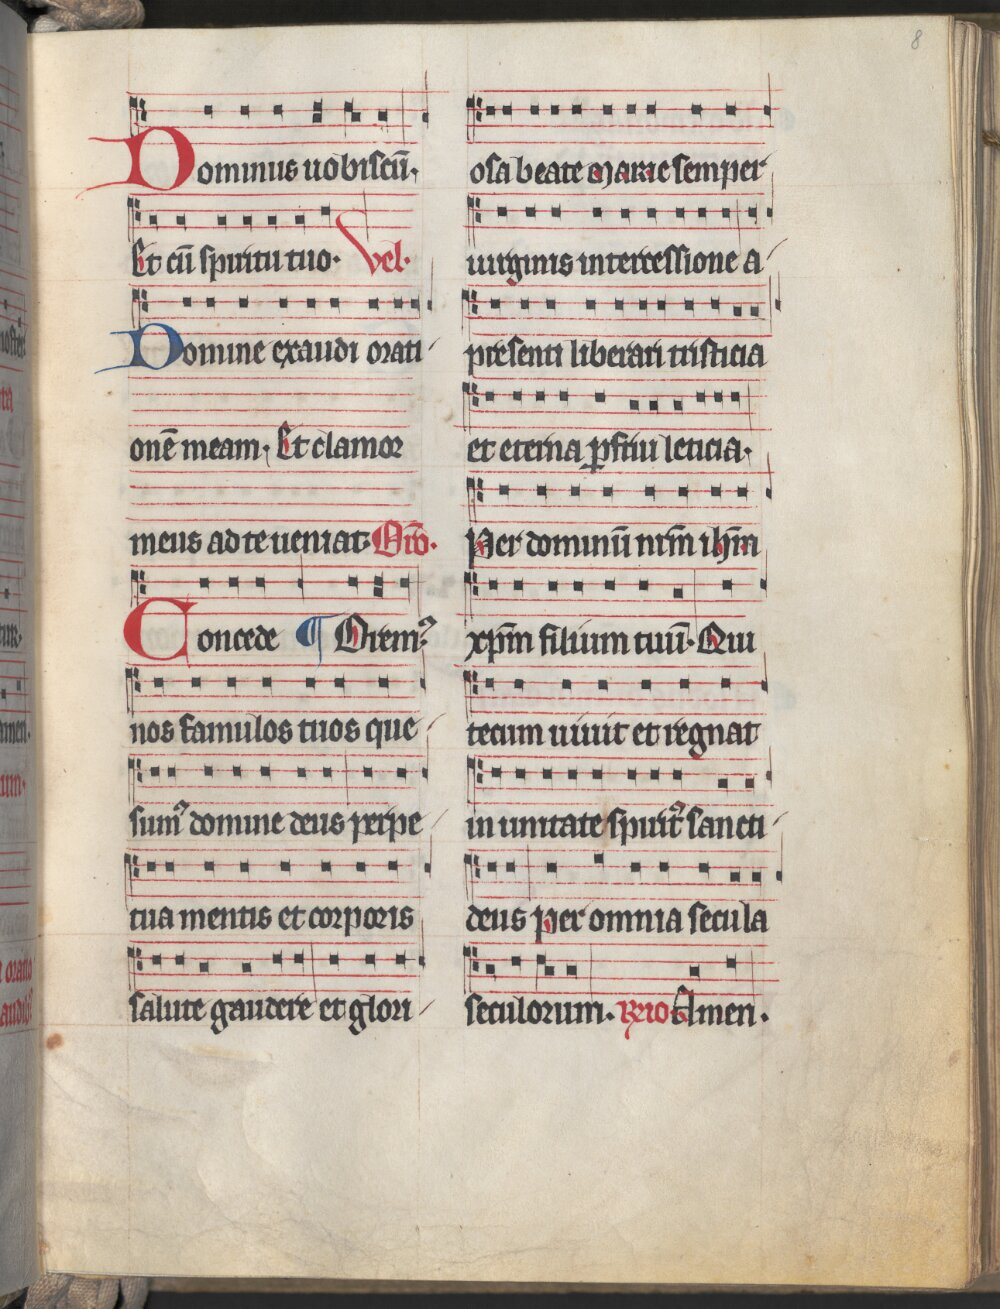 8
Dominus uobiscū.
Et cū spiritu tuo. Vel.
Domine exaudi orati
onē meam. Et clamor
meus ad te ueniat. Oro.
Concede ¶ Oremꝰ
nos famulos tuos que
sumꝰ domine deus perpe
tua mentis et corporis
salute gaudere et glori
osa beate marie semper
uirginis intercessione a
presenti liberari tristicia
et eterna ꝑfrui leticia.
Per dominū nrm̄ ihm̄
xpm̄ filium tuū. Qui
tecum uiuit et regnat
in unitate spiritꝰ sancti
deus per omnia secula
seculorum. Rẏio Amen.